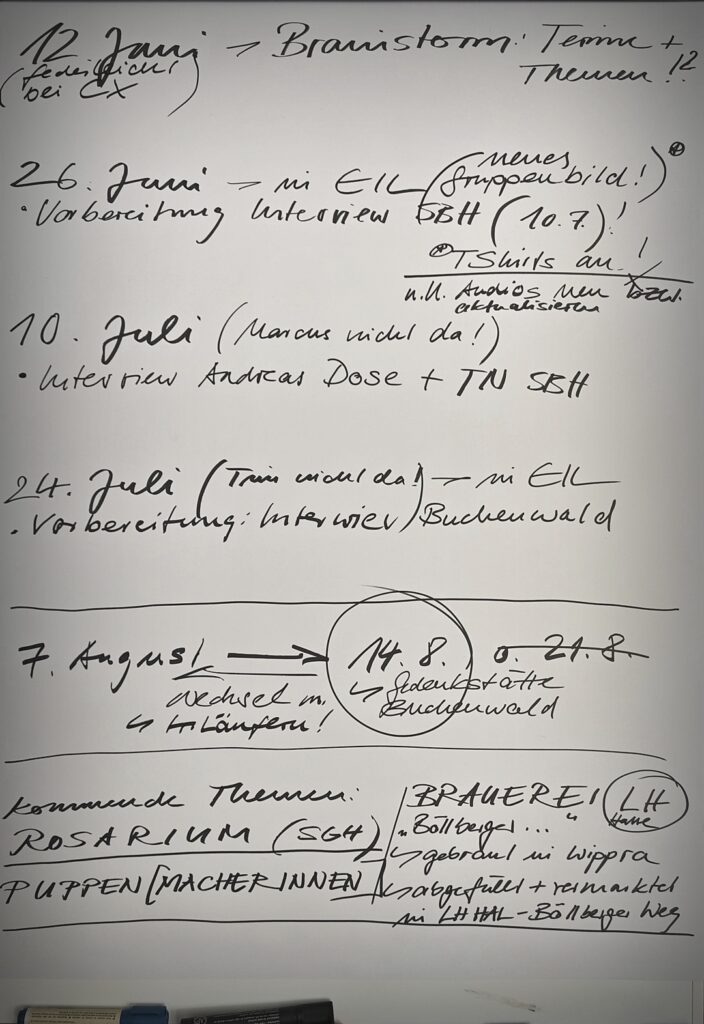 12 Juni → Brainstorm: Termine +
Themen !!
bei CX
26. Juni → in EIL (neues
Gruppenbild!) ⊕
• Vorbereitung Interview SBH (10.7.)!
⊕ TShirts an !
u.U. Audios neu bzw.
aktualisieren
10. Juli (Marcus nicht da!)
• Interview Andreas Dose + TN SBH
24. Juli ( nicht da!) → in EIL
• Vorbereitung: Interview Buchenwald
7. August → 14.8. o. 21.8.
↳ Gedenkstätte
Buchenwald
Wechsel m.
↳ Inläufern!
kommende Themen:
ROSARIUM (SGH)
PUPPEN[MACHERINNEN
BRAUEREI LH
Halle
"Böllberger ..."
↳ gebraut in Wippra
↳ abgefüllt + vermarktet
in LH HAL - Böllberger Weg